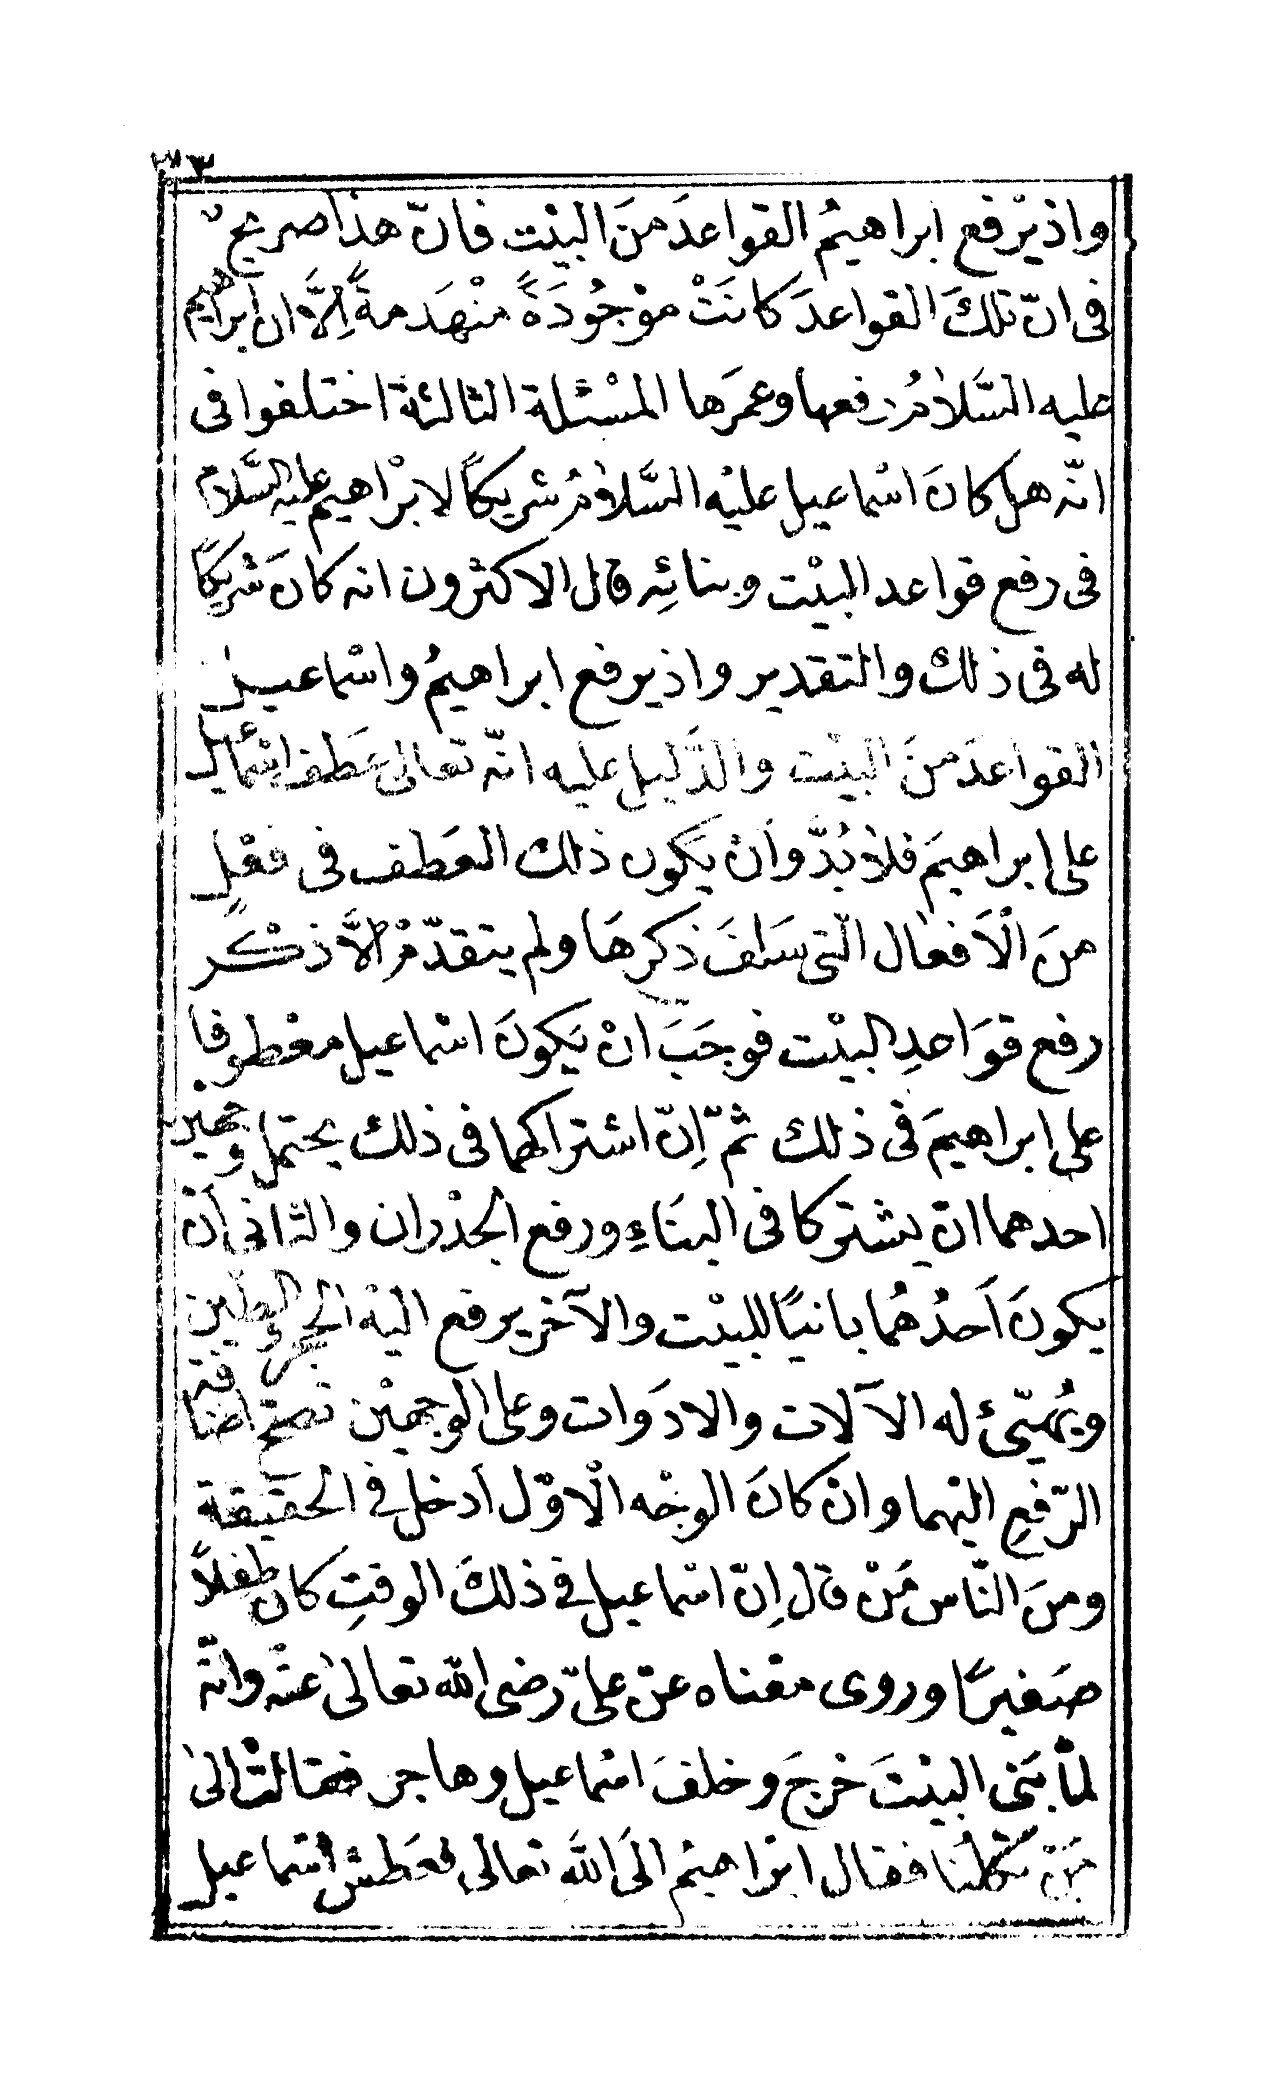 واذ يرفع ابراهيمُ القواعدَ منَ البيْت فانّ هذا صريح
فى انّ تلكَ القواعدَ كانَتْ موْجُودَةً منْهَدمةً اِلَّا ان ابراهيم
عليه السَّلامُ رفعها وعمرَها المسْئلة الثالثة اختلفوا فى
انّه هل كانَ اسْماعيل عليْه السَّلامُ شريكاً لابرْاهيم عليه السَّلام
فى رفع قواعد البيْت وبنائِه قال الاكثرون انه كانَ شريكاً
له فى ذلك والتقدير واذ يرفع ابراهيمُ واسْماعيل
القواعدَ منَ البيْت والدَّليل عليه انّه تعالى عَطف اسْماعيل
على ابراهيمَ فلاَ بُدَّ واَنْ يَكون ذلك العَطف فى فعْلٍ
منَ الْاَفعال الّتى سَلفَ ذكرهَا ولم يتقدّمْ اِلَّا ذكْر
رفع قوَاعدِ البيْت فوجَبَ انْ يَكونَ اسْماعيل معْطوفا
على ابراهيمَ فى ذلك ثمّ اِنّ اشتراكهما فى ذلك يحتمل وجهين
احدهما انْ يشتركا فى البنَاءِ ورفع الجدْران والثانى اَنْ
يكونَ اَحدُهُما بانيًا للبيْت والآخر يرفع اليْه الحجر والطين
ويُهيّئ له الآلات والادوَات وعلى الوجهيْن تصح اضافة
الرّفعِ اليْهما وانْ كانَ الوجْه الْاوّل اَدخل فى الحقيقة
ومنَ النّاس مَنْ قال اِنّ اسْماعيل فى ذلكَ الوقتِ كان طفلاً
صَغيرًا وروى معْناه عنْ علىّ رضى الله تعالىٰ عنْه وانّه
لمّا بَنى البيْتَ خرجَ وخلفَ اسْماعيل وهاجر فقالتْ الىٰ
مَنْ تكلُنا فقال ابْراهيم الَى اللّٰه تعالى فعَطش اسْماعيل